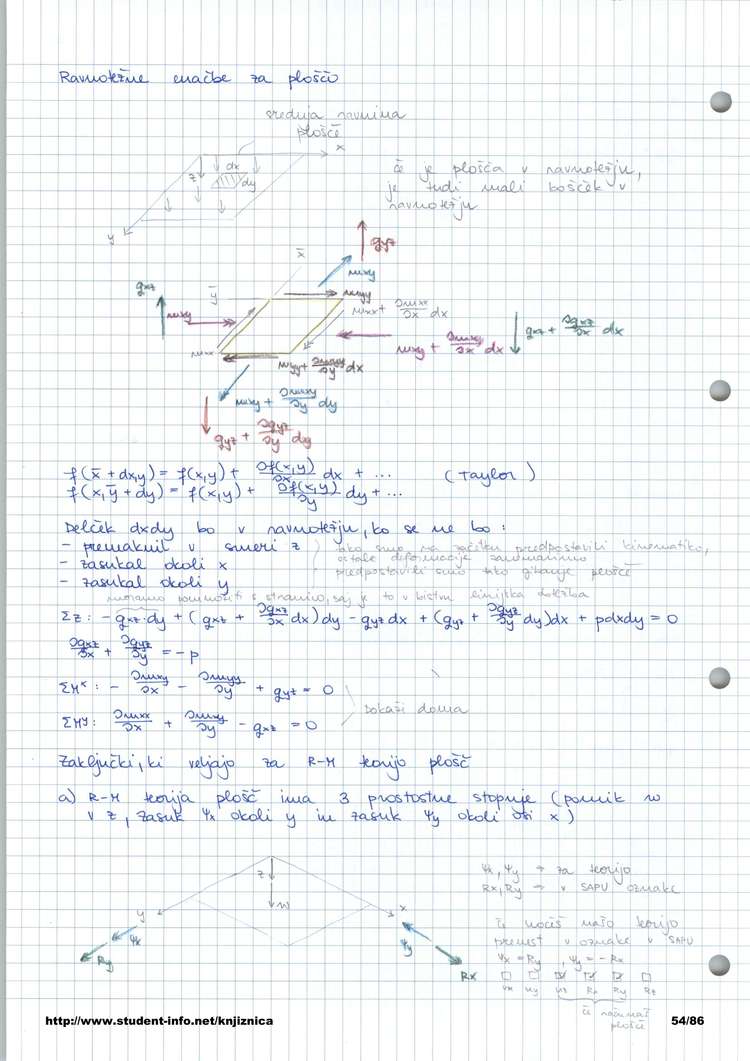 Ravnotežne enačbe za ploščo
srednja ravnina
plošče
x
dx
z
dy
y
če je plošča v ravnotežju,
je tudi mali košček v
ravnotežju
qyz
x̄
mxy
qxz
ȳ
myy
mxy
mxx + ∂mxx/∂x dx
qxz + ∂qxz/∂x dx
mxx
mxy + ∂mxy/∂x dx
myy + ∂myy/∂y dx
mxy + ∂mxy/∂y dy
qyz + ∂qyz/∂y dy
f(x̄ + dx,y) = f(x,y) + ∂f(x,y)/∂x dx + ... (Taylor)
f(x,ȳ + dy) = f(x,y) + ∂f(x,y)/∂y dy + ...
Delček dxdy bo v ravnotežju, ko se ne bo:
- premaknil v smeri z
tako smo na začetku predpostavili kinematiko,
- zasukal okoli x
ostale deformacije zanemarimo
- zasukal okoli y
predpostavili smo tako gibanje plošče
moramo pomnožiti s stranico, saj je to v bistvu linijska obtežba
Σz: - qxz·dy + (qxz + ∂qxz/∂x dx)dy - qyz dx + (qyz + ∂qyz/∂y dy)dx + pdxdy = 0
∂qxz/∂x + ∂qyz/∂y = -p
ΣMx: - ∂mxy/∂x - ∂myy/∂y + qyz = 0
Dokaži doma
ΣMy: ∂mxx/∂x + ∂mxy/∂y - qxz = 0
Zaključki, ki veljajo za R-M teorijo plošč
a) R-M teorija plošč ima 3 prostostne stopnje (pomik w
v z, zasuk ψx okoli y in zasuk ψy okoli osi x)
ψx, ψy → za teorijo
Rx, Ry → v SAPU oznake
z
w
y
x
ψx
ψy
Ry
Rx
če hočeš našo teorijo
prenest v oznake v SAPU
ψx = Ry, ψy = -Rx
ux uy uz Rx Ry Rz
če računaš
plošče
http://www.student-info.net/knjiznica
54/86